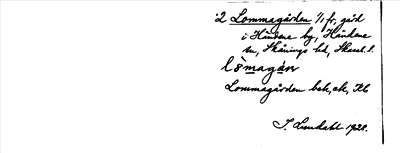 2 Lommagården 1/1 fr. gård
i Händene by, Händene
sn, Skånings hd, Skarab. l.
lòmagán
Lommagården bek, ek, Kb
I. Lundahl 1928.